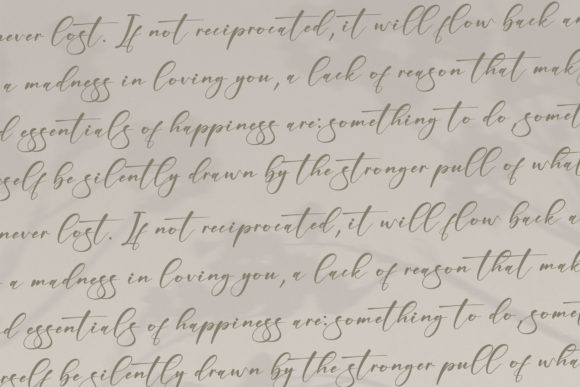 never lost. If not reciprocated, it will flow back an
a madness in loving you, a lack of reason that mak
d essentials of happiness are: something to do, somet
rself be silently drawn by the stronger pull of what
never lost. If not reciprocated, it will flow back a
a madness in loving you, a lack of reason that mak
d essentials of happiness are: something to do, somet
rself be silently drawn by the stronger pull of wha